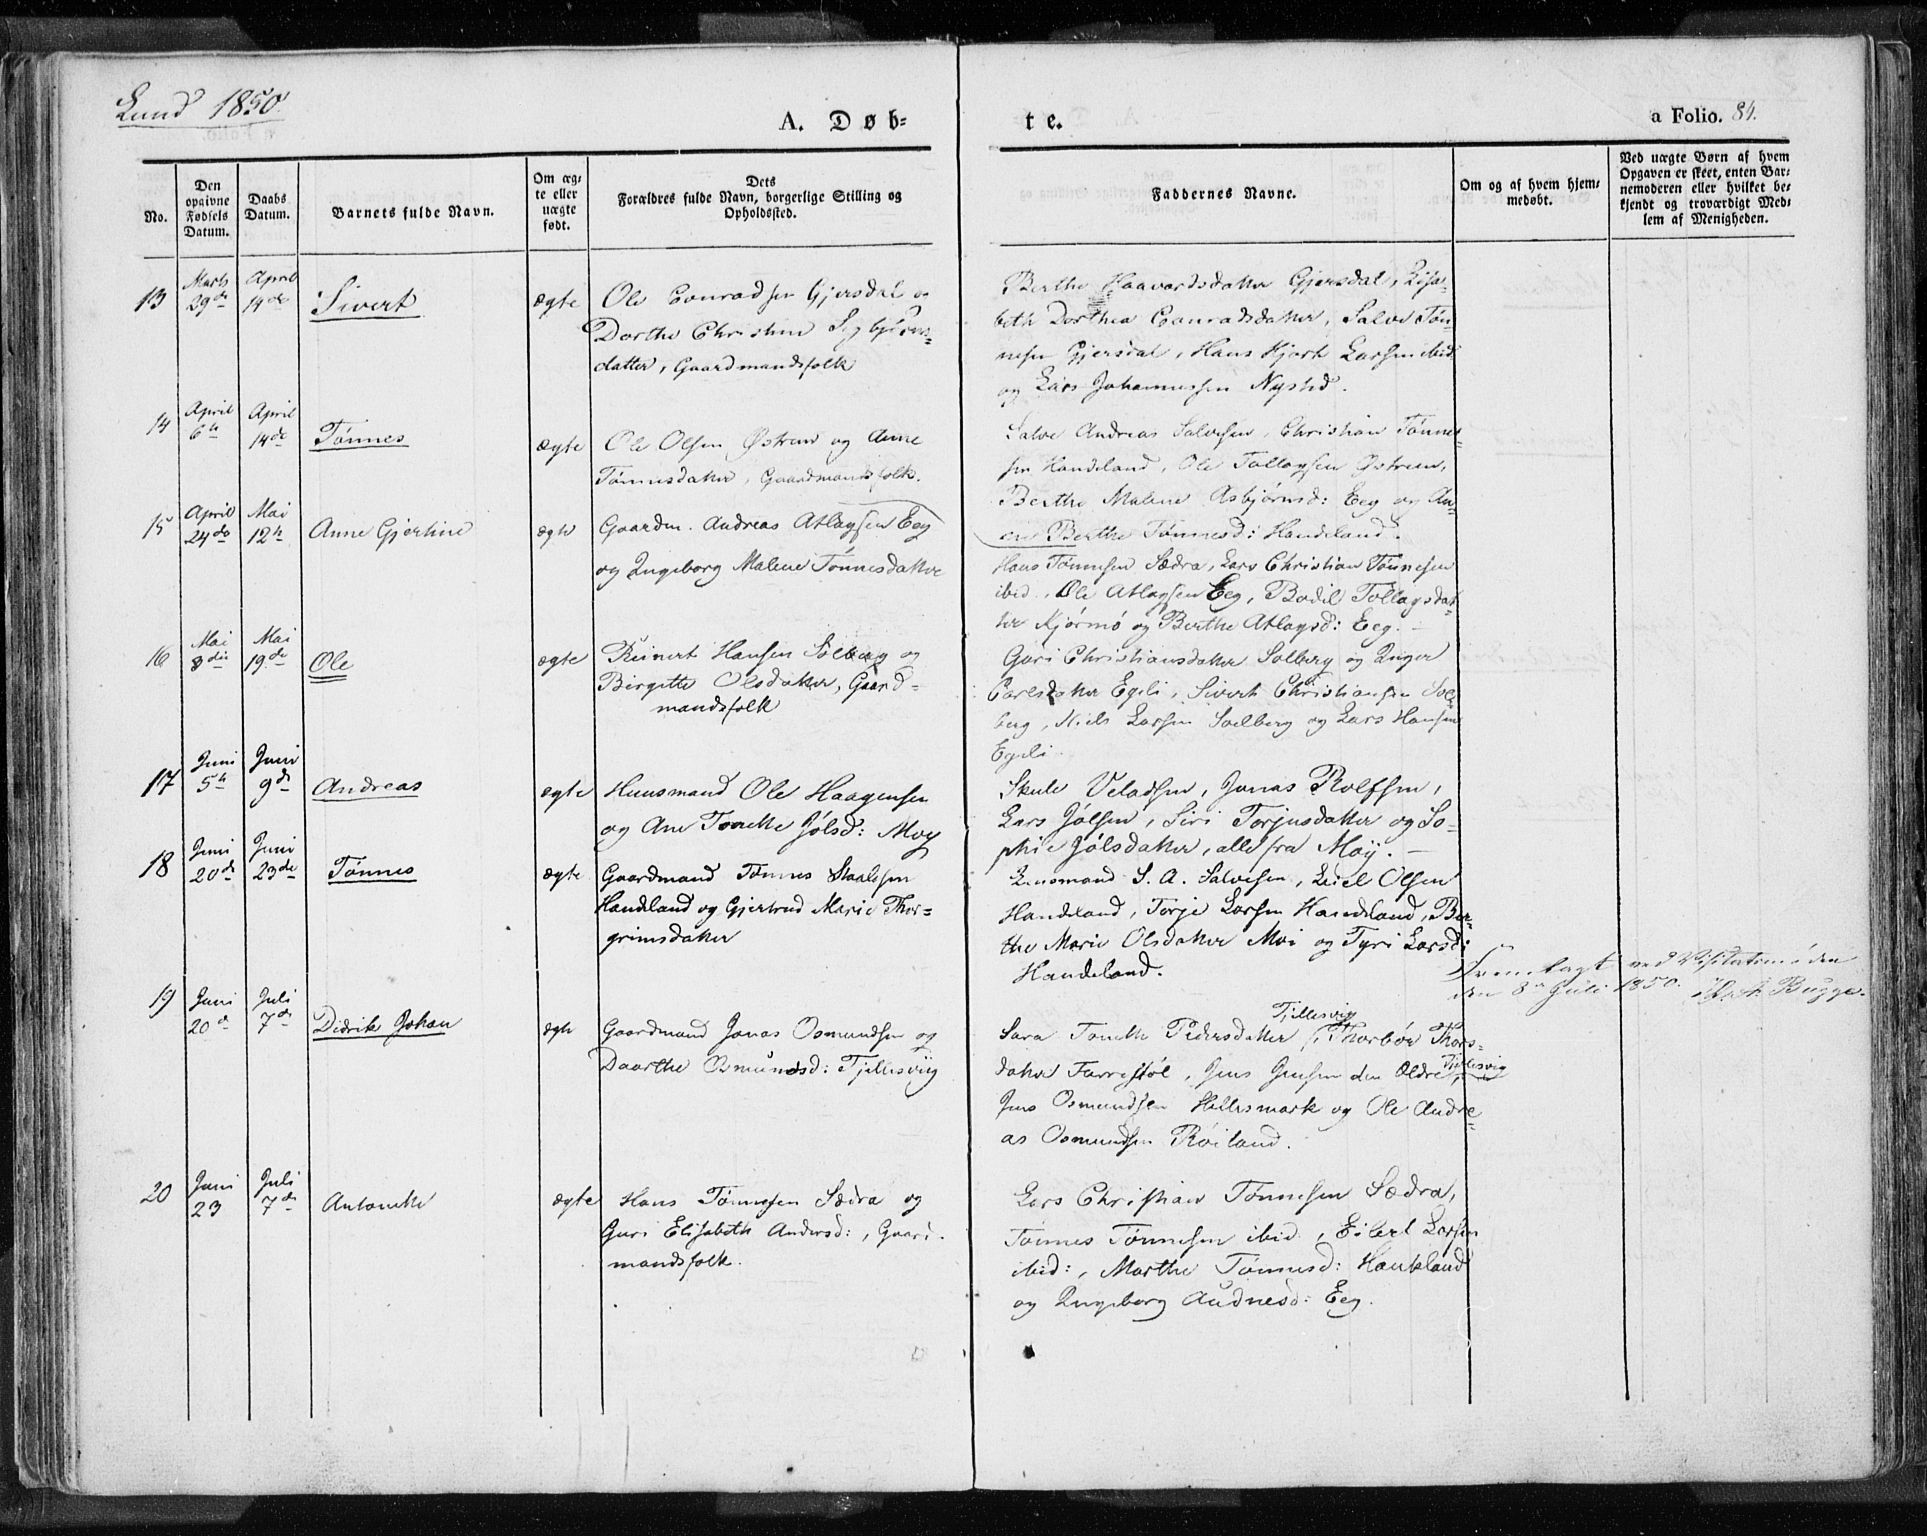 Lund 1850.
A. Døb-
te.
a Folio. 84.
No.
Den opgivne Fødsels Datum.
Daabs Datum.
Barnets fulde Navn.
Om æg-
te eller
uægte
født.
Dets
Forældres fulde Navn, borgerlige Stilling og
Opholdssted.
Faddernes Navne.
Om og af hvem hjem-
medøbt.
Ved uægte Børn af hvem
Opgaven er skeet, enten Bar-
nemoderen eller hvilket be-
kjendt og troværdigt Med-
lem af Menigheden.
13 Marts 29de April 14de Sivert ægte
Ole Conradsen Gjersdal og
Dorthe Christine Sigbjørns-
datter, Gaardmandsfolk
Berthe Haavardsdatter Gjersdal, Lisa-
beth Dorthea Conradsdatter, Salve Tøn-
nesen Gjersdal, Hans Hjort Larsen ibid
og Lars Johannessen Nysted.
14 April 6te April 14de Tønnes ægte
Ole Olsen Østrem og Anne
Tønnesdatter, Gaardmandsfolk.
Salve Andreas Salvesen, Christian Tønnes-
sen Handeland, Ole Tollagsen Østrem,
Berthe Malene Asbjørnsd: Eeg og An-
ne Berthe Tønnesd: Handeland.
15 April 24de Mai 12te Anne Gjertine ægte
Gaardm. Andreas Atlagsen Eeg
og Ingeborg Malene Tønnesdatter
Hans Tønnesen Sædra, Lars Christian Tønnesen
ibid., Ole Atlagsen Eeg, Bodil Tollagsdat-
ter Kjørmo og Berthe Atlagsd: Eeg.
16 Mai 8die Mai 19de Ole ægte
Reinert Hansen Solberg og
Birgitte Olsdatter, Gaard-
mandsfolk
Guri Christiansdatter Solberg og Inger
Carlsdatter Egeli, Sivert Christiansen Sol-
berg, Niels Larsen Soelberg og Lars Hansen
Egeli.
17 Juni 5te Juni 9de Andreas ægte
Huusmand Ole Haagensen
og Ane Tonette Jølsd: Moy
Skule Veladsen, Jonas Rolfsen,
Lars Jølsen, Siri Torjusdatter og So-
phie Jølsdatter, alle fra Moÿ.
18 Juni 20de Juni 23de Tønnes ægte
Gaardmand Tønnes Staalesen
Handeland og Gjertrud Marie Thor-
grimsdatter
Lensmand S. A. Salvesen, Eiel Olsen
Handeland, Torje Larsen Handeland, Ber-
the Marie Olsdatter Moi og Tyri Larsd:
Handeland.
Fremlagt ved Visitatsmøden
den 8de Juli 1850. Bugge.
19 Juni 20de Juli 7de Didrik Johan ægte
Gaardmand Jonas Osmundsen og
Daarthe Osmundsd: Tjellesvig
Tjellesvig
Sara Tonette Pedersdatter, Thorbør Thors-
datter Farrestøl, Jens Jensen den Ældre Tjellesvig,
Jens Osmundsen Hellesmark og Ole Andre-
as Osmundsen Røiland.
20 Juni 23 Juli 7de Antonette ægte
Hans Tønnesen Sædra og
Guri Elisabeth Andersd:, Gaard-
mandsfolk.
Lars Christian Tønnesen Sædra,
Tønnes Tønnesen ibid, Eilert Larsen
ibid:, Marthe Tønnesd: Haukland
og Ingeborg Audnesd: Eeg.